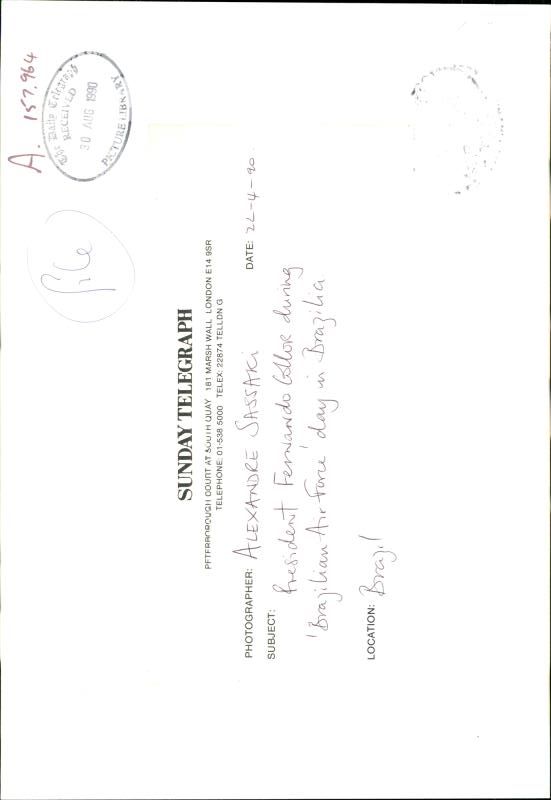 A. 157.964
The Daily Telegraph
RECEIVED
30 AUG 1990
PICTURE LIBRARY
file
SUNDAY TELEGRAPH
PETERBOROUGH COURT AT SOUTH QUAY 181 MARSH WALL LONDON E14 9SR
TELEPHONE: 01-538 5000 TELEX: 22874 TELLDN G
PHOTOGRAPHER: ALEXANDRE SASSAKI DATE: 22-4-90.
SUBJECT: President Fernando Collor during
'Brazilian Air Force' day in Brazilia
LOCATION: Brazil